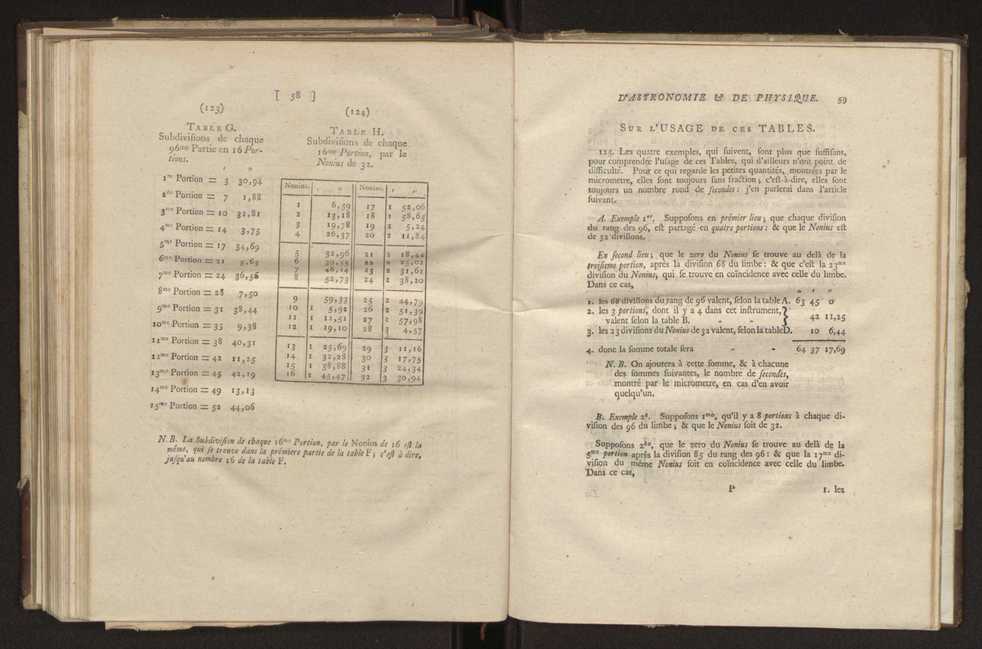 [ 58 ]
(123)
TABLE G.
Subdivisions de chaque
96me Partie en 16 Por-
tions.
′ ″
1re Portion = 3 30,94
2me Portion = 7 1,88
3me Portion = 10 32,81
4me Portion = 14 3,75
5me Portion = 17 34,69
6me Portion = 21 5,63
7me Portion = 24 36,56
8me Portion = 28 7,50
9me Portion = 31 38,44
10me Portion = 35 9,38
11me Portion = 38 40,31
12me Portion = 42 11,25
13me Portion = 45 42,19
14me Portion = 49 13,13
15me Portion = 52 44,06
(124)
TABLE H.
Subdivisions de chaque
16me Portion, par le
Nonius de 32.
Nonius. ′ ″ Nonius. ′ ″
1 6,59 17 1 52,06
2 13,18 18 1 58,65
3 19,78 19 2 5,24
4 26,37 20 2 11,84
5 32,96 21 2 18,42
6 39,55 22 2 25,02
7 46,14 23 2 31,61
8 52,73 24 2 38,20
9 59,33 25 2 44,79
10 1 5,92 26 2 51,39
11 1 12,51 27 2 57,98
12 1 19,10 28 3 4,57
13 1 25,69 29 3 11,16
14 1 32,28 30 3 17,75
15 1 38,88 31 3 24,34
16 1 45,47 32 3 30,94
N. B. La Subdivision de chaque 16me Portion, par le Nonius de 16 est la
même, qui se trouve dans la prémiere partie de la table F; c'est à dire,
jusqu'au nombre 16 de la table F.
D'ASTRONOMIE & DE PHYSIQUE. 59
SUR L'USAGE DE CES TABLES.
125. Les quatre exemples, qui suivent, sont plus que suffisans,
pour comprendre l'usage de ces Tables, qui d'ailleurs n'ont point de
difficulté. Pour ce qui regarde les petites quantités, montrées par le
micrometre, elles sont toujours sans fraction; c'est-à-dire, elles sont
toujours un nombre rond de secondes: j'en parlerai dans l'article
suivant.
A. Exemple 1er. Supposons en prémier lieu; que chaque division
du rang des 96, est partagé en quatre portions: & que le Nonius est
de 32 divisions.
En second lieu; que le zero du Nonius se trouve au delà de la
troisieme portion, après la division 68 du limbe: & que c'est la 23me
division du Nonius, qui se trouve en coïncidence avec celle du limbe.
Dans ce cas,
° ′ ″
1. les 68 divisions du rang de 96 valent, selon la table A. 63 45 0
2. les 3 portions, dont il y a 4 dans cet instrument,
valent selon la table B. - - } 42 11,25
3. les 23 divisions du Nonius de 32 valent, selon la table D. 10 6,44
4. donc la somme totale sera - - 64 37 17,69
N. B. On ajoutera à cette somme, & à chacune
des sommes suivantes, le nombre de secondes,
montré par le micrometre, en cas d'en avoir
quelqu'un.
B. Exemple 2d. Supposons 1mo, qu'il y a 8 portions à chaque di-
vision des 96 du limbe; & que le Nonius soit de 32.
Supposons 2do, que le zero du Nonius se trouve au delà de la
5me portion après la division 85 du rang des 96: & que la 17me di-
vision du même Nonius soit en coïncidence avec celle du limbe.
Dans ce cas,
1. les